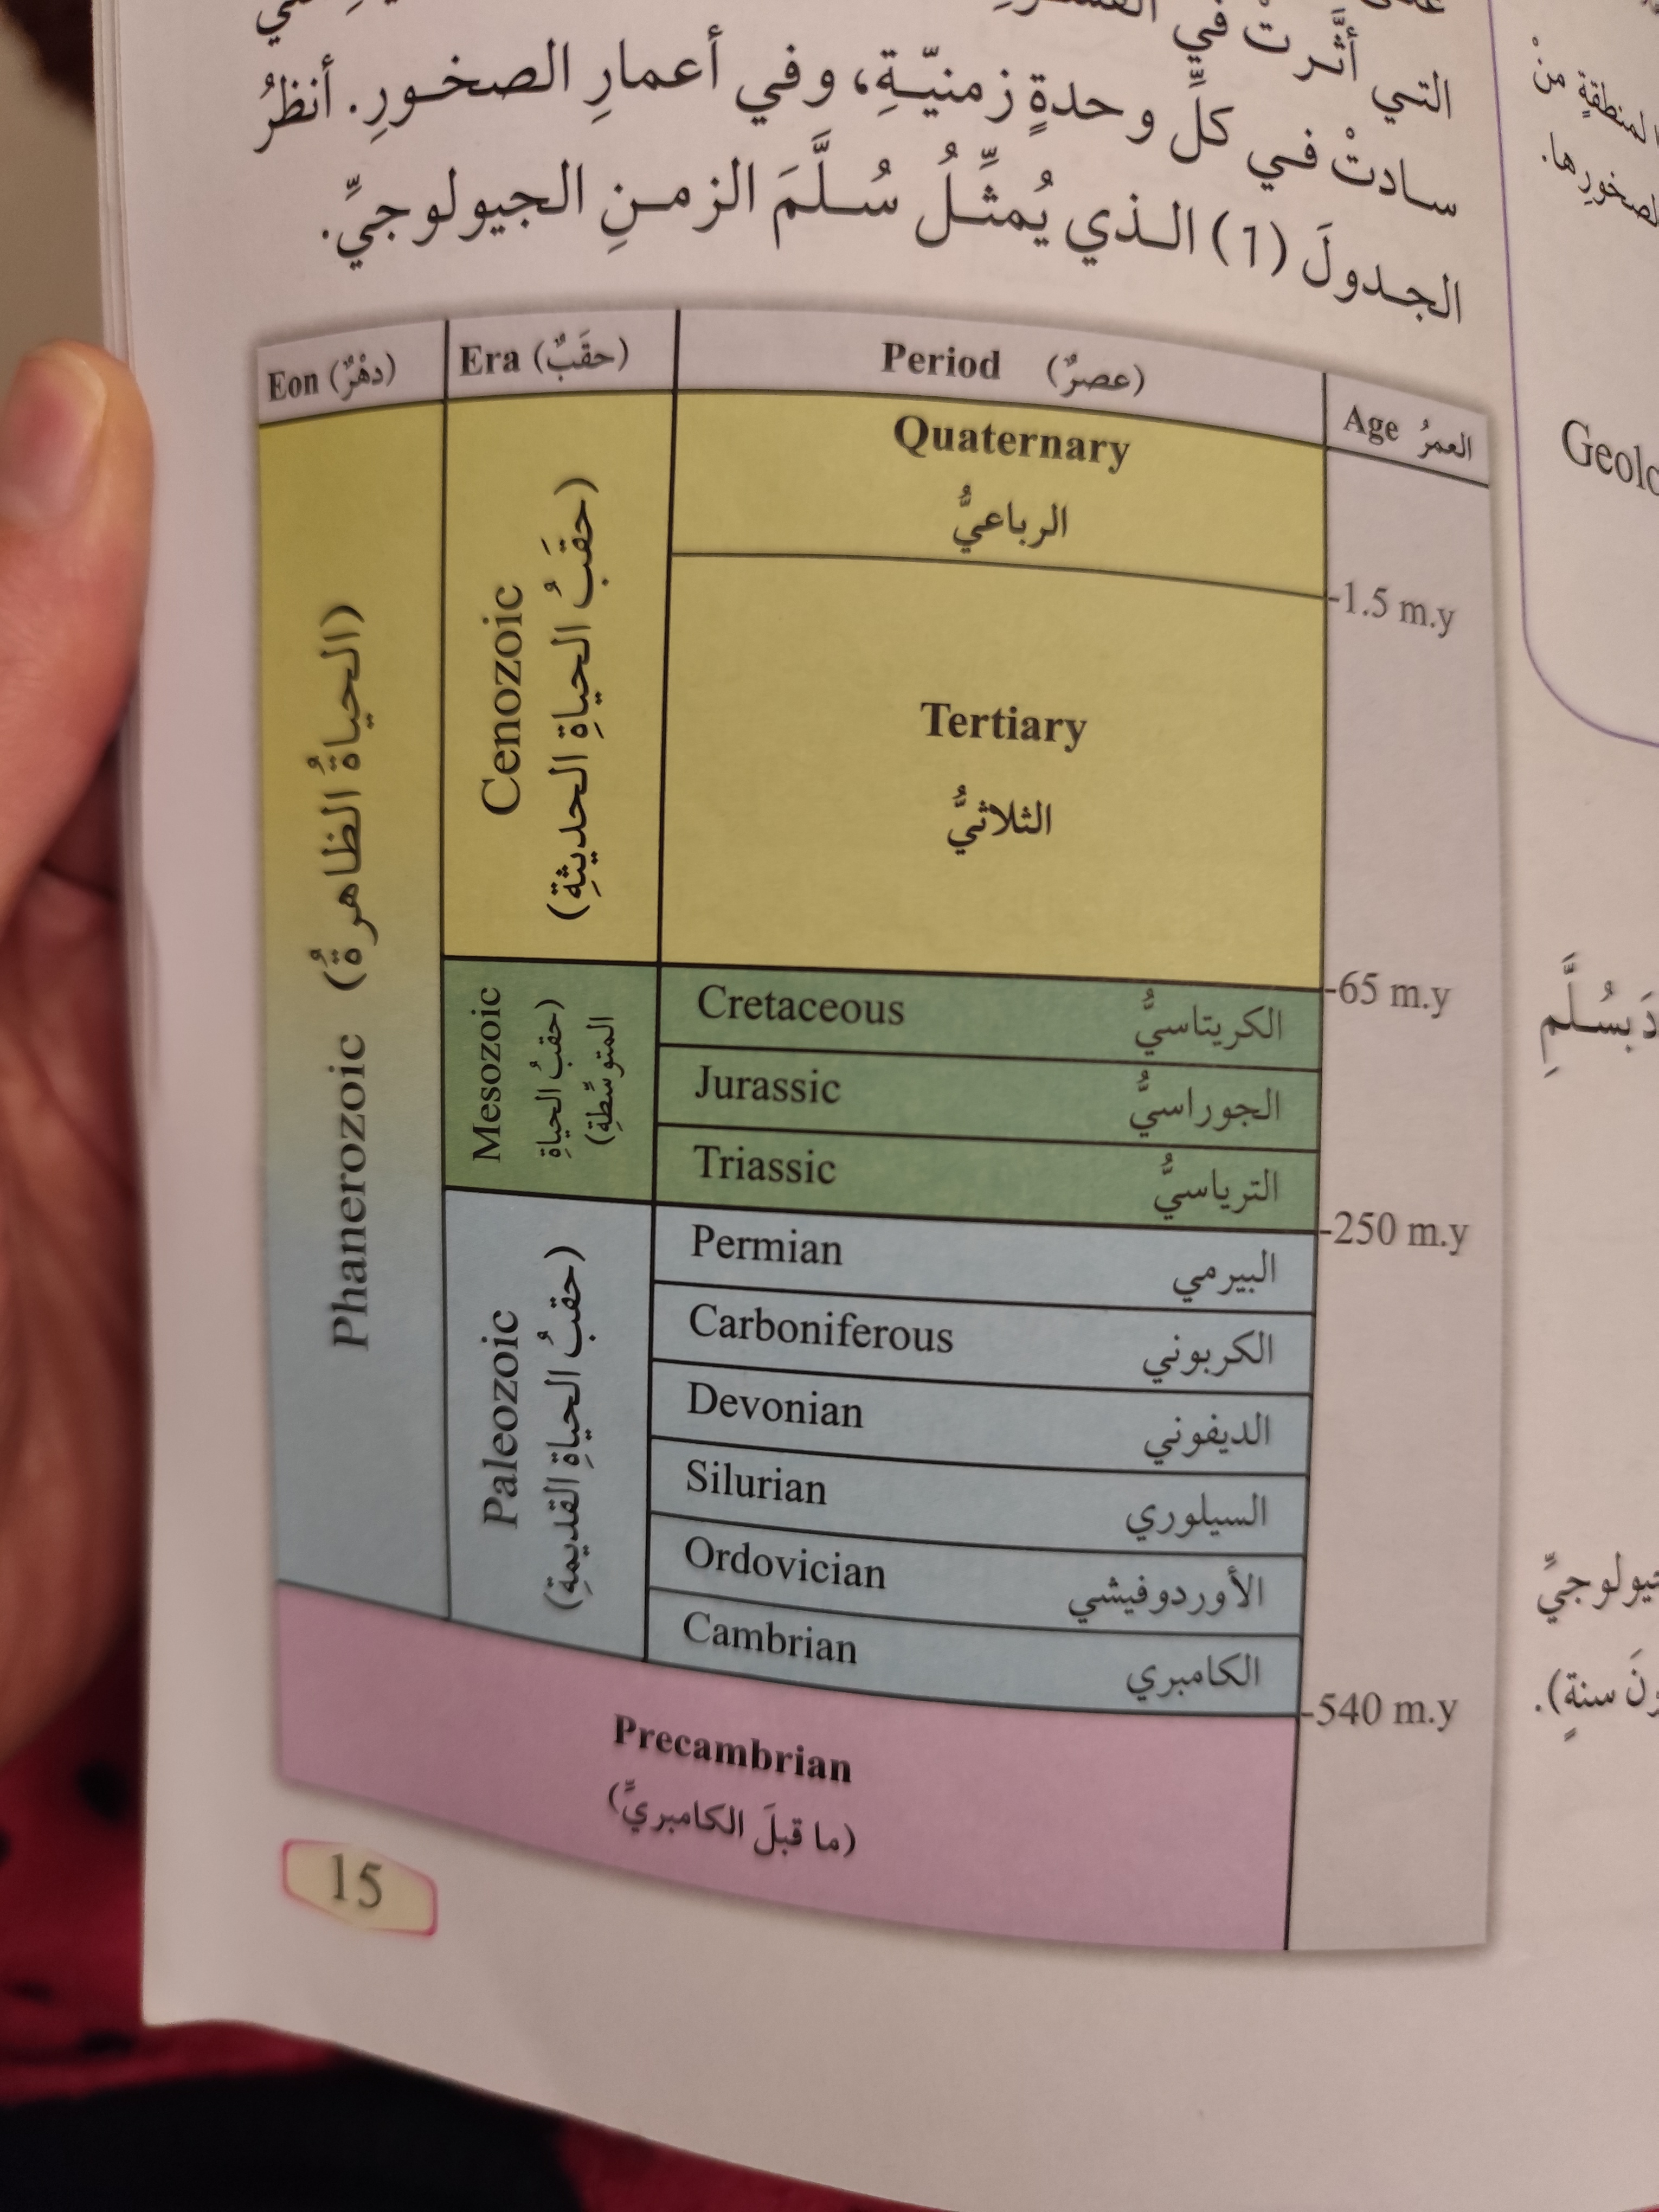 التي أثَّرتْ في
سادتْ في كلِّ وحدةٍ زمنيّةٍ، وفي أعمارِ الصخورِ. أنظرُ
الجدولَ (1) الذي يُمثِّلُ سُلَّمَ الزمنِ الجيولوجيِّ.
Eon (دهْرٌ) Era (حقَبٌ) Period (عصرٌ) Age العمرُ
Phanerozoic (الحياةُ الظاهرةُ)
Cenozoic
(حقَبُ الحياةِ الحديثةِ)
Quaternary
الرباعيُّ
-1.5 m.y
Tertiary
الثلاثيُّ
-65 m.y
Mesozoic
(حقبُ الحياةِ
المتوسِّطةِ)
Cretaceous الكريتاسيُّ
Jurassic الجوراسيُّ
Triassic الترياسيُّ
-250 m.y
Paleozoic
(حقبُ الحياةِ القديمةِ)
Permian البيرمي
Carboniferous الكربوني
Devonian الديفوني
Silurian السيلوري
Ordovician الأوردوفيشي
Cambrian الكامبري
-540 m.y
Precambrian
(ما قبلَ الكامبريِّ)
15
المنطقةِ منْ
صخورِها.
سنةٍ).